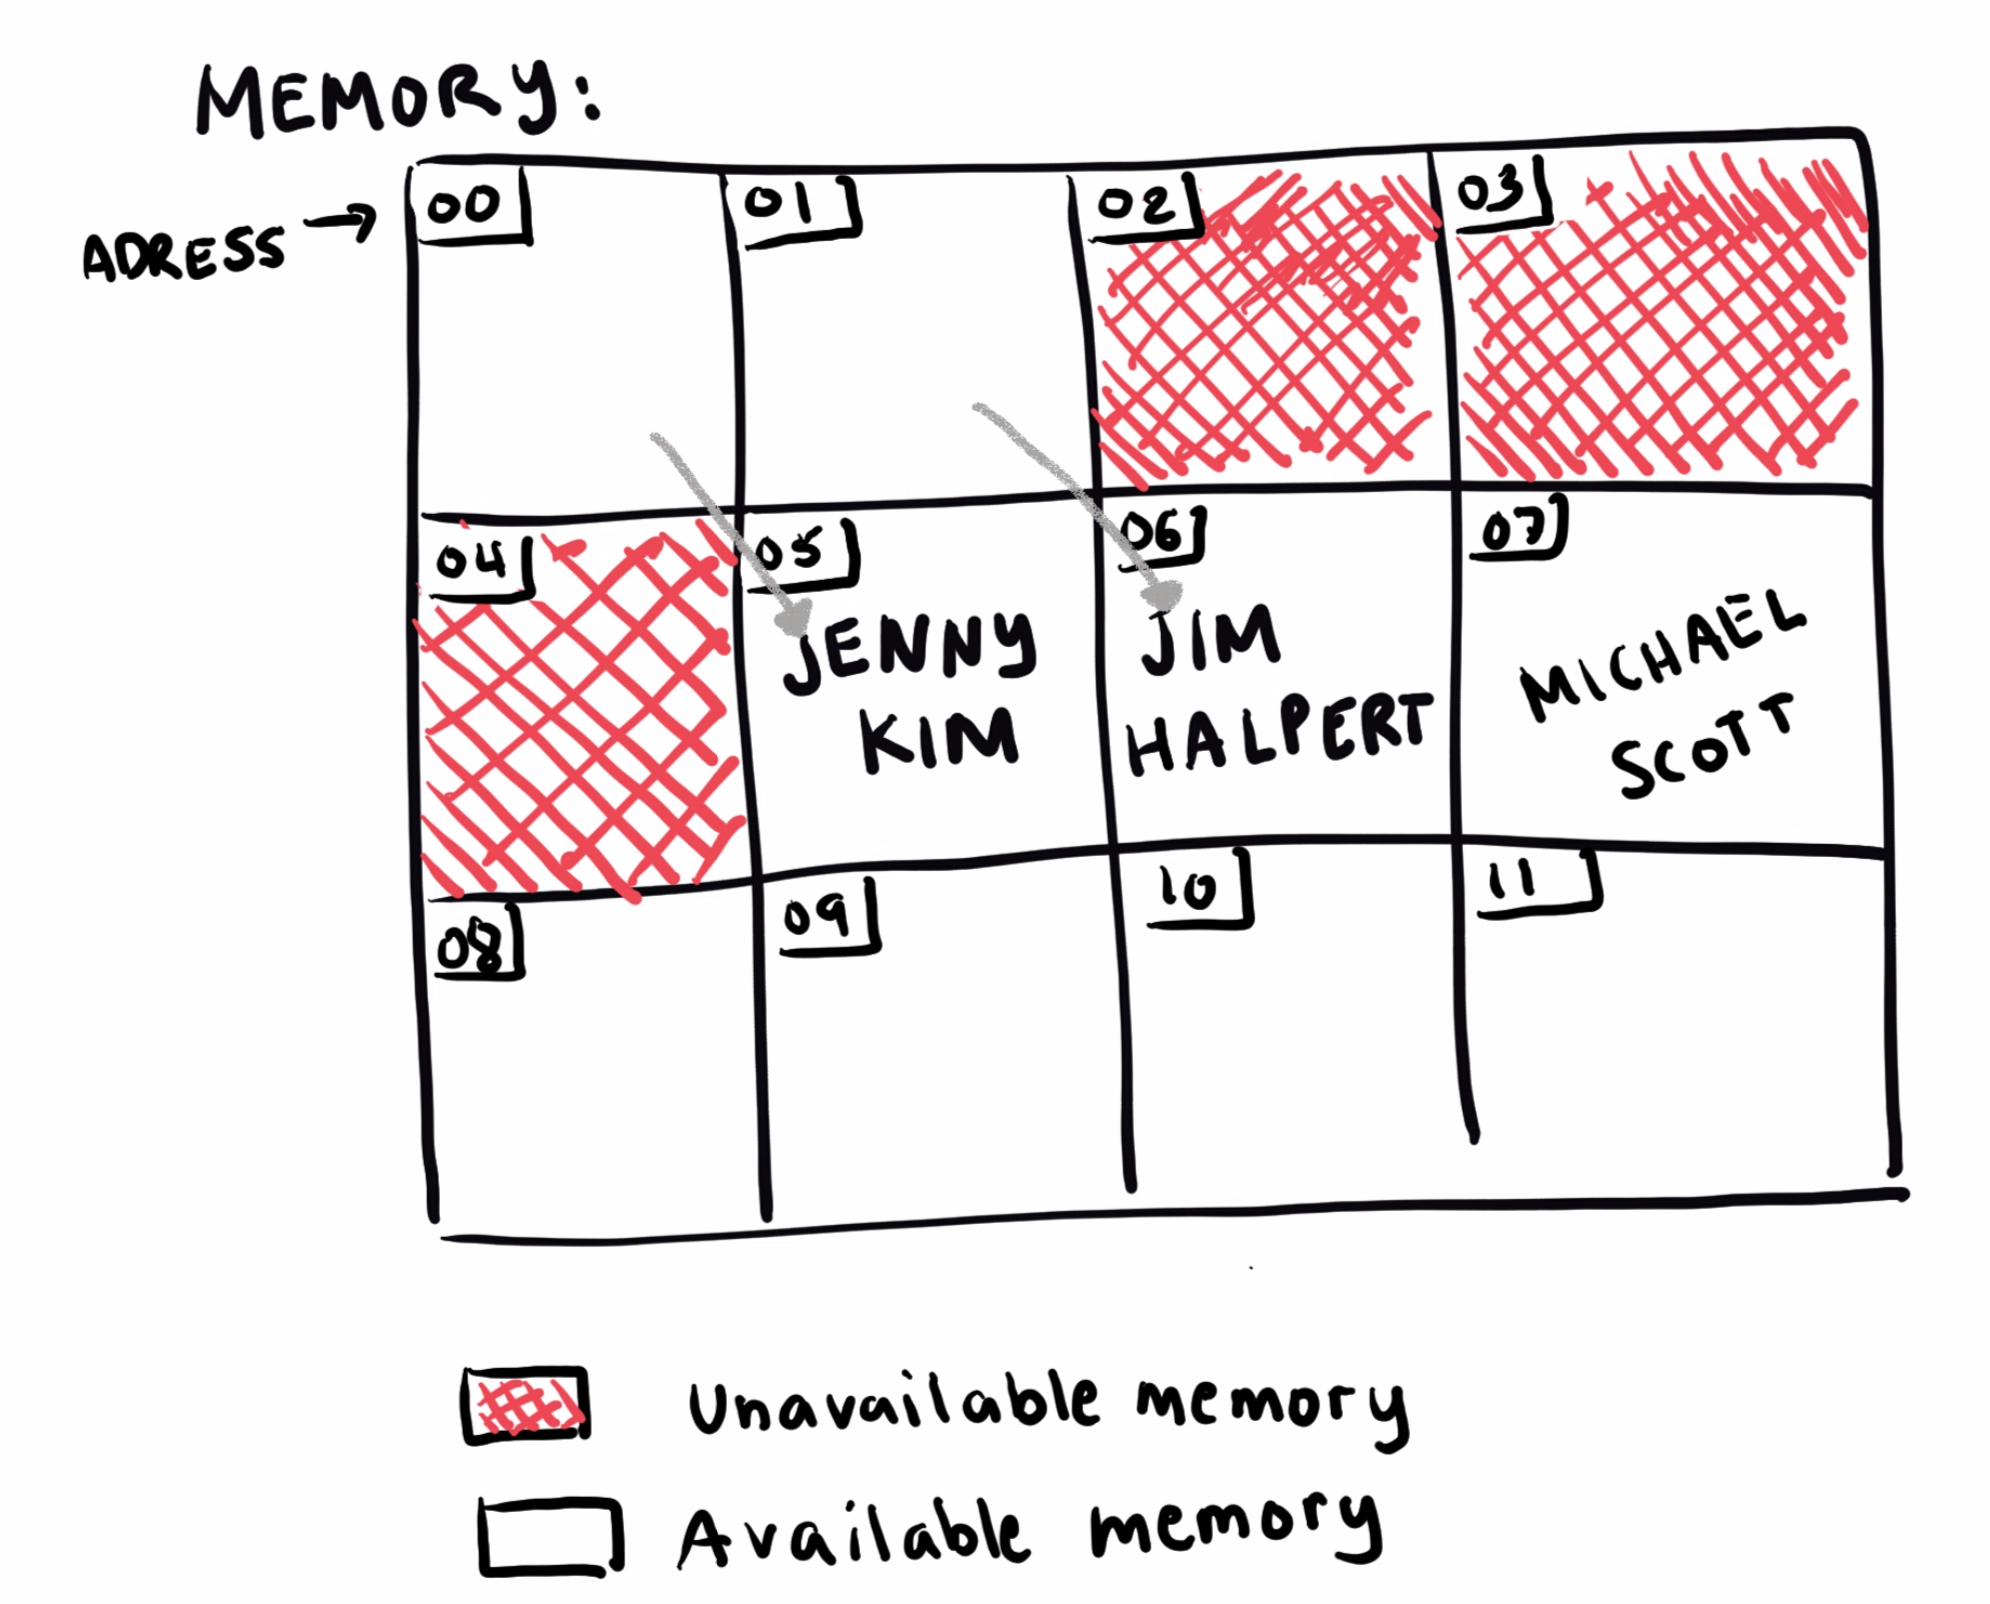 MEMORY:
ADRESS →
00
01
02
03
04
05
06
07
JENNY
KIM
JIM
HALPERT
MICHAEL
SCOTT
08
09
10
11
Unavailable memory
Available memory